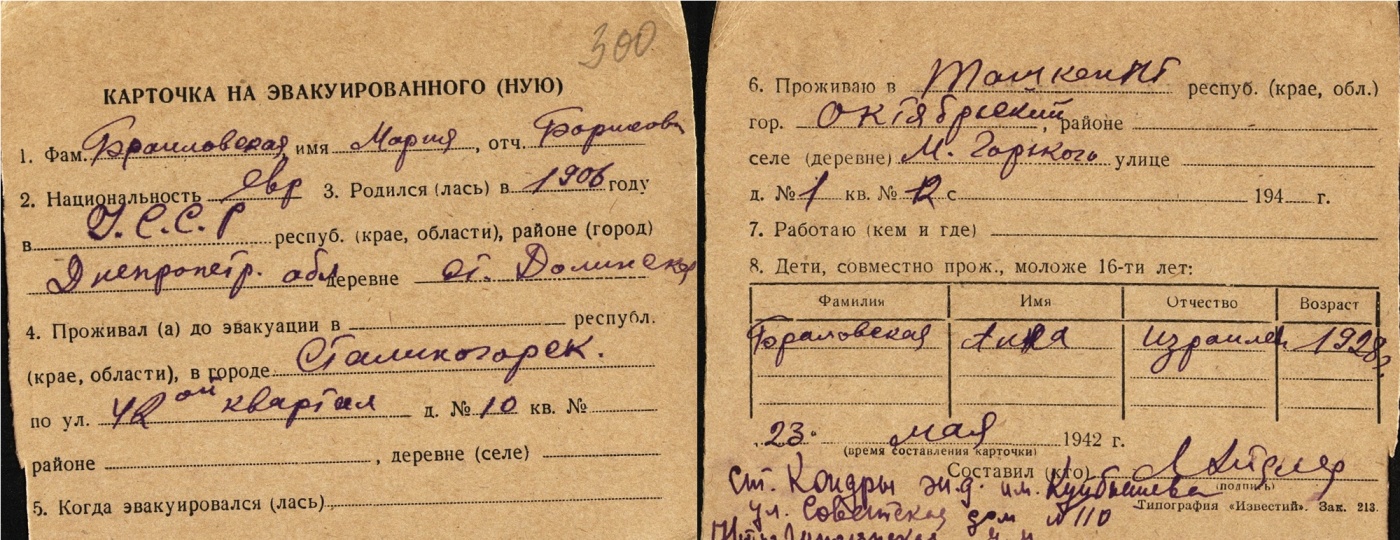 300
КАРТОЧКА НА ЭВАКУИРОВАННОГО (НУЮ)
1. Фам. Браиловская, имя Мария, отч. Борисовн
2. Национальность Евр 3. Родился (лась) в 1906 году
в У.С.С.Р респуб. (крае, области), районе (город)
Днепропетр. обл деревне ст. Долинская
4. Проживал (а) до эвакуации в республ.
(крае, области), в городе Сталиногорск.
по ул. 42ой квартал д. № 10 кв. №
районе , деревне (селе)
5. Когда эвакуировался (лась)
6. Проживаю в Ташкент респуб. (крае, обл.)
гор. Октябрьский, районе
селе (деревне) М. Горького улице
д. № 1 кв. № 12 с 194 г.
7. Работаю (кем и где)
8. Дети, совместно прож., моложе 16-ти лет:
Фамилия Имя Отчество Возраст
Браловская Анна Израилев 1928г.
23. мая 1942 г.
(время составления карточки)
Составил (кто)
(подпись)
Ст. Кондры ж.д. им. Куйбышева
Типография «Известий». Зак. 213.
ул. Советская дом № 110